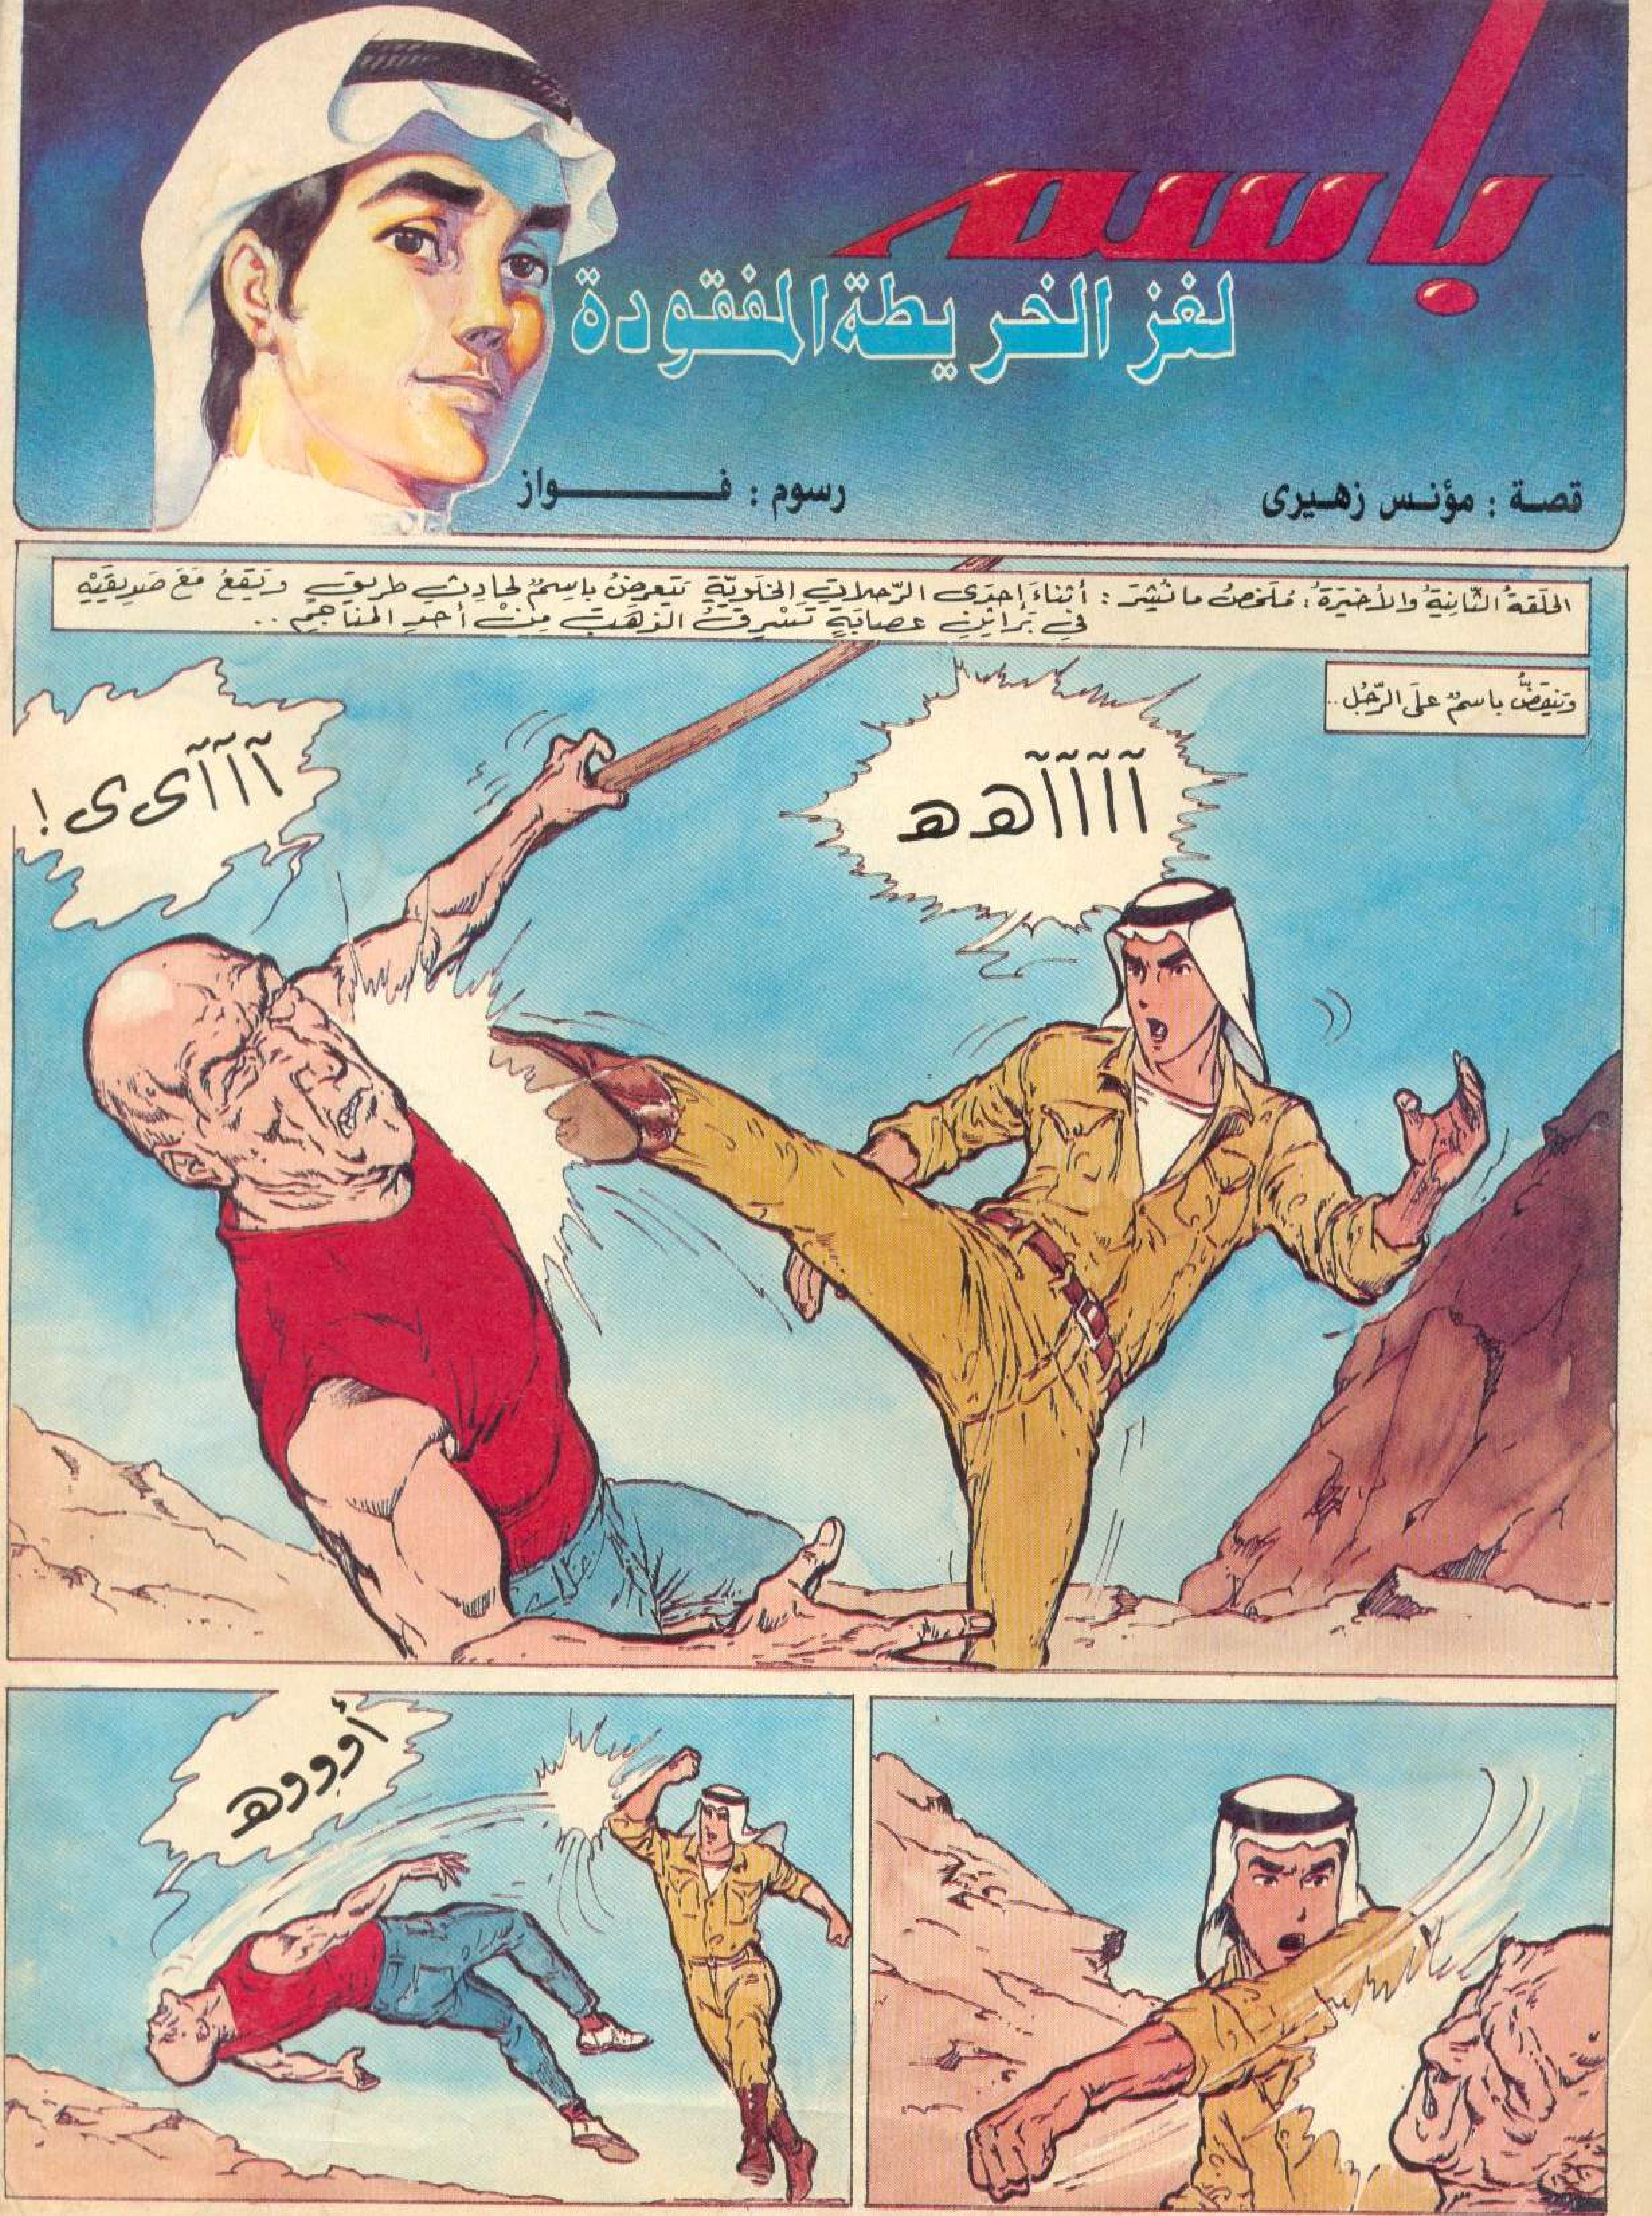 باسم
لغز الخريطة المفقودة
قصة : مؤنس زهيرى
رسوم : فـــواز
الحَلَقةُ الثَّانِيَةُ والأخِيَرةُ : مُلَخصُ ما نُشِرَ : أثناءَ إحدَى الرّحلاتِ الخَلَويّةِ يَتَعرضُ باسِمٌ لحادِثِ طريقٍ وَيَقعُ مَعَ صَدِيقَيْهِ
في بَراثِنِ عصابَةٍ تَسْرِقُ الذهَبَ مِنْ أحدِ المناجِمِ ..
وَيَنقَضُّ باسمٌ عَلَى الرّجُلِ ..
آآآآهه
آآآىى !
أوووه